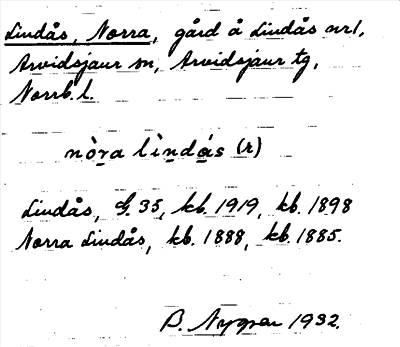 Lindås, Norra, gård å Lindås nr 1,
Arvidsjaur sn, Arvidsjaur tg,
Norrb. l.
nòra lìndås (r)
Lindås, G. 35, kb. 1919, kb. 1898
Norra Lindås, kb. 1888, kb. 1885.
B. Nygren 1932.